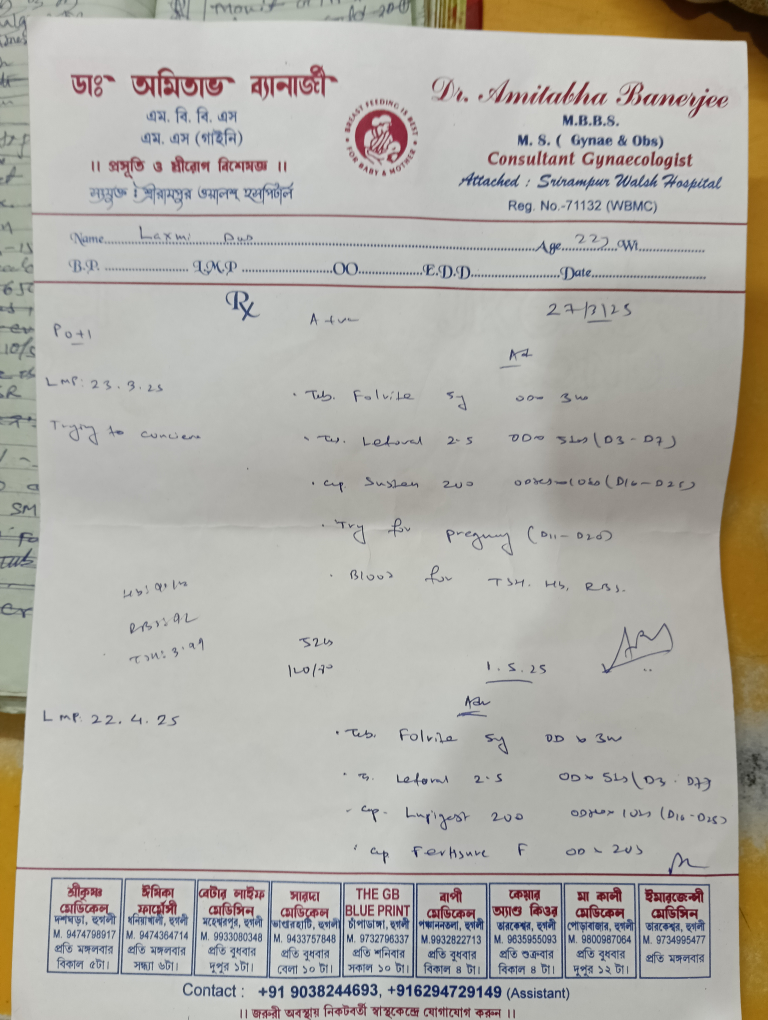 ডাঃ অমিতাভ ব্যানার্জী
এম. বি. বি. এস
এম. এস (গাইনি)
।। প্রসূতি ও স্ত্রীরোগ বিশেষজ্ঞ ।।
সংযুক্ত : শ্রীরামপুর ওয়ালশ হসপিটাল
BREAST FEEDING IS BEST
FOR BABY & MOTHER
Dr. Amitabha Banerjee
M.B.B.S.
M. S. ( Gynae & Obs)
Consultant Gynaecologist
Attached : Srirampur Walsh Hospital
Reg. No.-71132 (WBMC)
Name Laxmi Age 22y Wt.
B.P. L.M.P OO E.D.D. Date
Rx
27/3/25
P0+1
Adv
LMP: 23.3.25
Trying to conceive
• Tab. Folvite 5g OD 3m
• Tab. Letoval 2.5 OD 5ds (D3-D7)
• Cap Susten 200 (D16-D25)
• Try for pregnancy (D11-D20)
• Blood for TSH, Hb, RBS.
RBS: 92
TSH: 3.99
120/70
1.5.25
Adv
LMP: 22.4.25
• Tab. Folvite 5g OD 3m
• T. Letoval 2.5 OD 5ds (D3-D7)
- Cap. Lupigest 200 (D16-D25)
• Cap Fertisure F OD
শ্রীকৃষ্ণ মেডিকেল
দশঘড়া, হুগলী
M. 9474798917
প্রতি মঙ্গলবার
বিকাল ৫টা।
ঈপিকা ফার্মেসী
ধনিয়াখালী, হুগলী
M. 9474364714
প্রতি মঙ্গলবার
সন্ধ্যা ৬টা।
বেটার লাইফ মেডিসিন
মহেশ্বরপুর, হুগলী
M. 9933080348
প্রতি বুধবার
দুপুর ১টা।
সারদা মেডিকেল
ভান্ডারহাটি, হুগলী
M. 9433757848
প্রতি বুধবার
বেলা ১০ টা।
THE GB
BLUE PRINT
চাঁপাডাঙ্গা, হুগলী
M. 9732796337
প্রতি শনিবার
সকাল ১০ টা।
বাপী মেডিকেল
হুগলী
M. 9932822713
প্রতি বুধবার
বিকাল ৪ টা।
কেয়ার অ্যাণ্ড কিওর
তারকেশ্বর, হুগলী
M. 9635955093
প্রতি শুক্রবার
বিকাল ৪ টা।
মা কালী মেডিকেল
পোড়াবাজার, হুগলী
M. 9800987064
প্রতি বুধবার
দুপুর ১২ টা।
ইমারজেন্সী মেডিসিন
তারকেশ্বর, হুগলী
M. 9734995477
প্রতি মঙ্গলবার
Contact : +91 9038244693, +916294729149 (Assistant)
।। জরুরী অবস্থায় নিকটবর্তী স্বাস্থ্যকেন্দ্রে যোগাযোগ করুন ।।